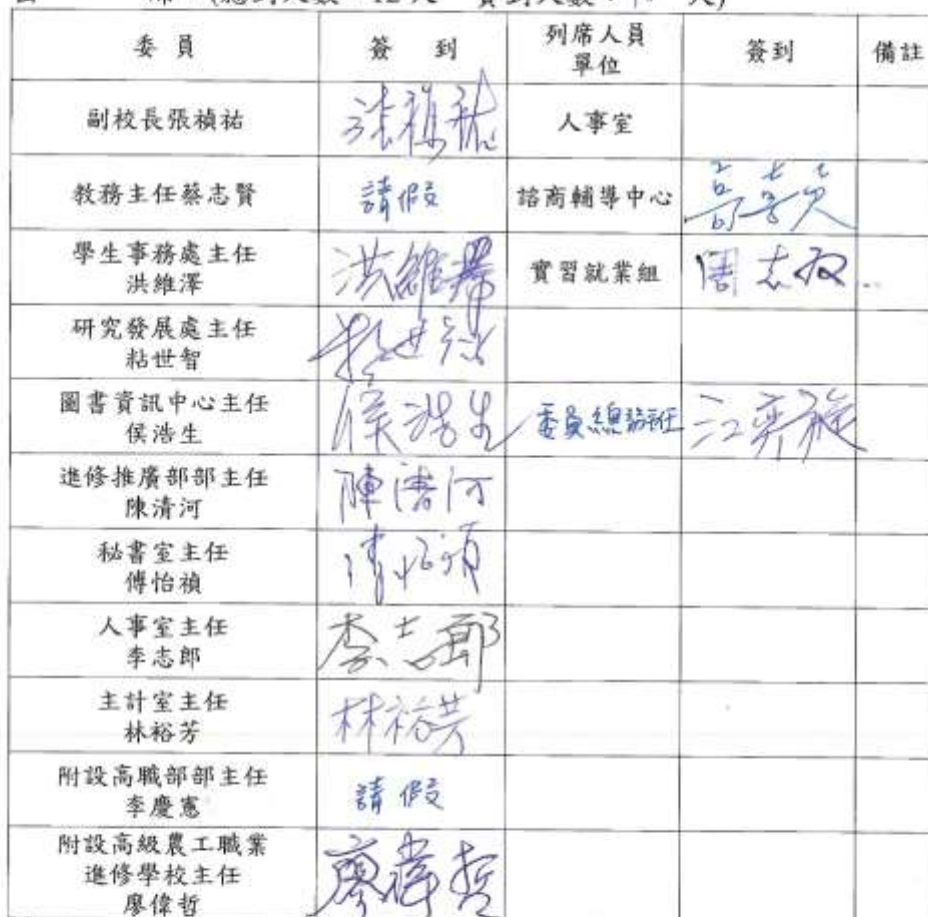 委員 簽到 列席人員單位 簽到 備註
副校長張禎祐 張禎祐 人事室
教務主任蔡志賢 請假 諮商輔導中心
學生事務處主任
洪維澤 洪維澤 實習就業組 周志
研究發展處主任
粘世智 粘世智
圖書資訊中心主任
侯浩生 侯浩生 委員 江奕旋
進修推廣部部主任
陳清河 陳清河
秘書室主任
傅怡禎
人事室主任
李志郎 李志郎
主計室主任
林裕芳 林裕芳
附設高職部部主任
李慶憲 請假
附設高級農工職業
進修學校主任
廖偉哲 廖偉哲